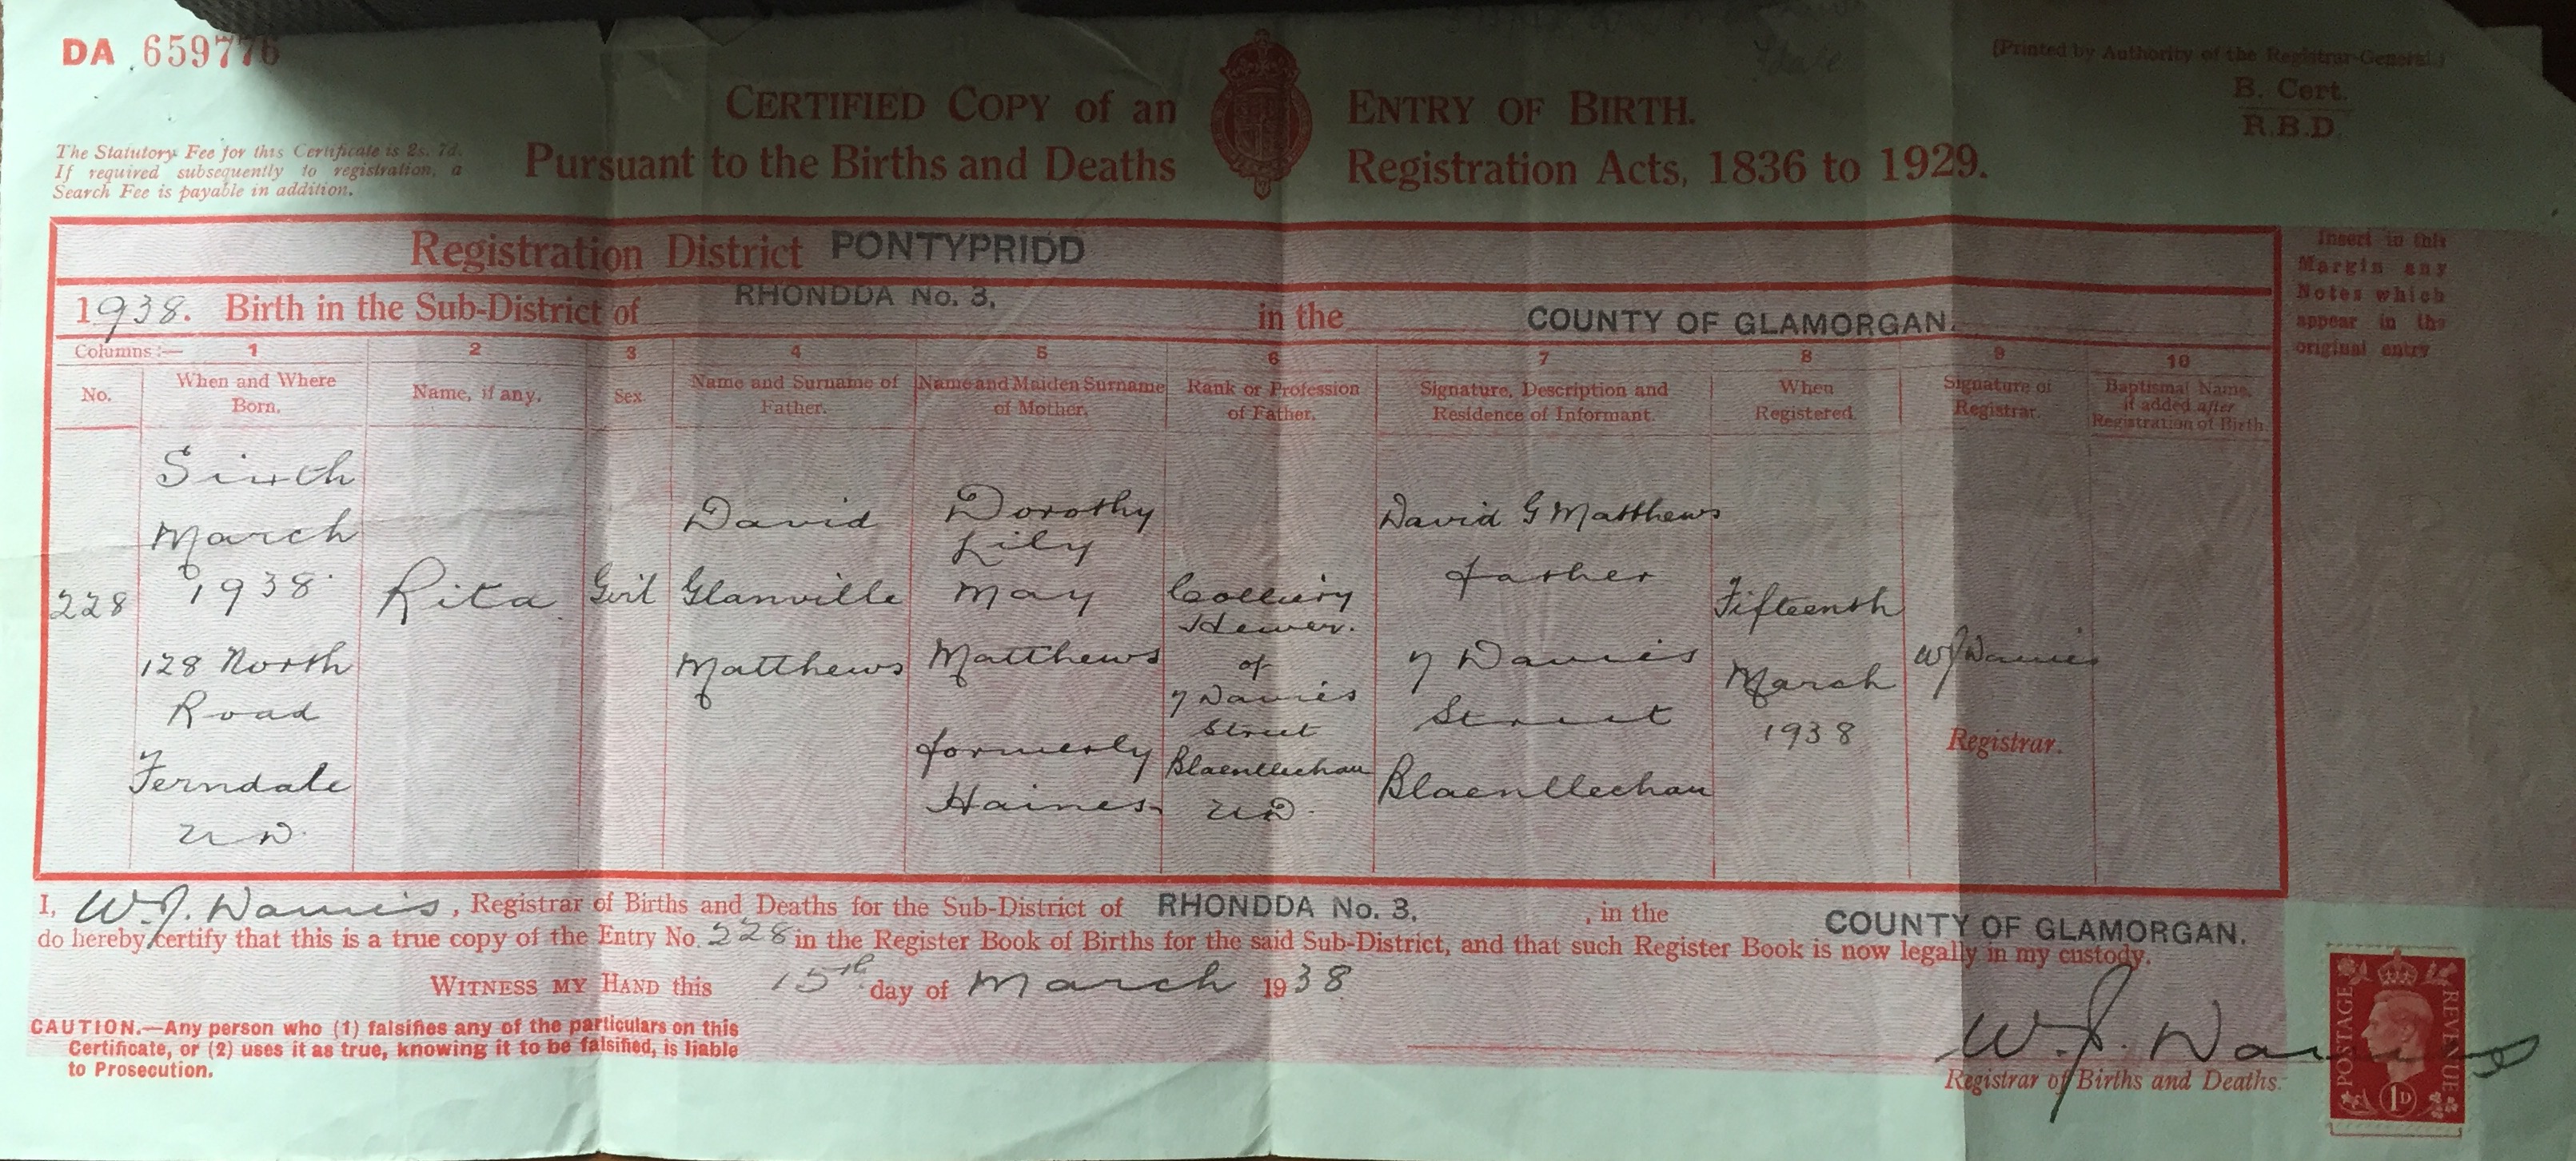 DA 659776
[Printed by Authority of the Registrar-General.]
B. Cert.
R.B.D.
CERTIFIED COPY of an ENTRY OF BIRTH.
Pursuant to the Births and Deaths Registration Acts, 1836 to 1929.
The Statutory Fee for this Certificate is 2s. 7d.
If required subsequently to registration, a
Search Fee is payable in addition.
Registration District PONTYPRIDD
1938. Birth in the Sub-District of RHONDDA No. 3. in the COUNTY OF GLAMORGAN.
Insert in this
Margin any
Notes which
appear in the
original entry
Columns:— 1 2 3 4 5 6 7 8 9 10
No.
When and Where
Born.
Name, if any.
Sex
Name and Surname of
Father.
Name and Maiden Surname
of Mother.
Rank or Profession
of Father.
Signature, Description and
Residence of Informant.
When
Registered.
Signature of
Registrar.
Baptismal Name,
if added after
Registration of Birth.
228
Sixth
March
1938
128 North
Road
Ferndale
U D
Rita
Girl
David
Glanville
Matthews
Dorothy
Lily
May
Matthews
formerly
Haines
Colliery
Hewer.
of
7 Davies
Street
Blaenllechau
U D
David G Matthews
father
7 Davies
Street
Blaenllechau
Fifteenth
March
1938
W J Davies
Registrar.
I, W. J. Davies, Registrar of Births and Deaths for the Sub-District of RHONDDA No. 3. , in the COUNTY OF GLAMORGAN.
do hereby certify that this is a true copy of the Entry No. 228 in the Register Book of Births for the said Sub-District, and that such Register Book is now legally in my custody.
WITNESS MY HAND this 15th day of March 1938
CAUTION.—Any person who (1) falsifies any of the particulars on this
Certificate, or (2) uses it as true, knowing it to be falsified, is liable
to Prosecution.
W. J. Davies
Registrar of Births and Deaths.
POSTAGE
REVENUE
1D